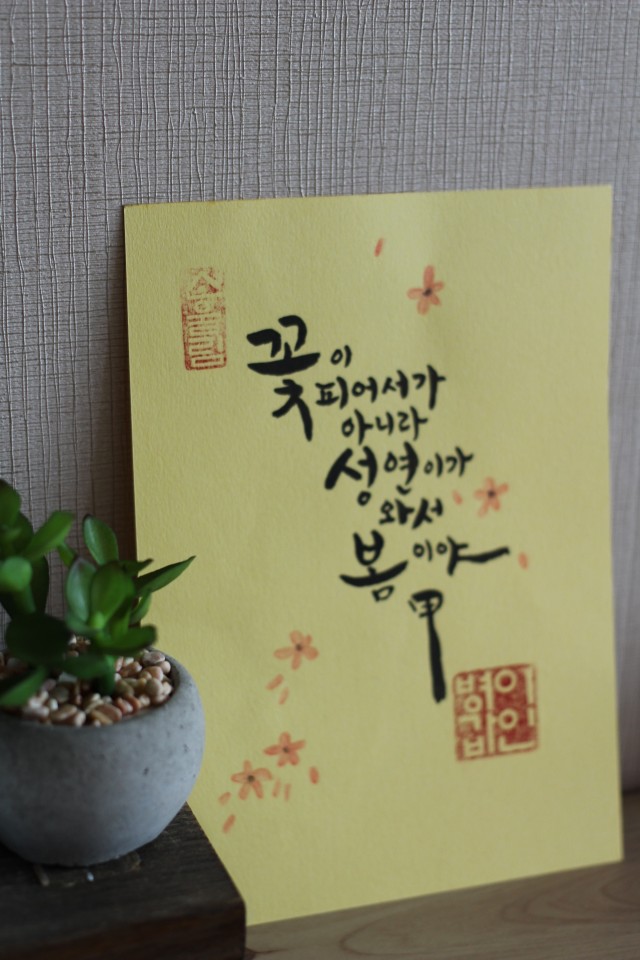 꽃이
피어서가
아니라
성연이가
와서
봄이야
甲